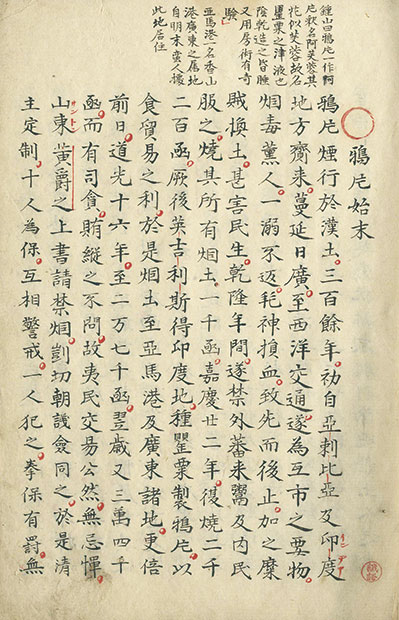 鐘山曰鴉片一作阿
片釈名阿芙蓉其
花似芙蓉故名
罌粟之津液也
陰乾造之皆睡
又用房術有奇
験
亜馬港一名香山
港廣東之属地
自明末蛮人據
此地居住
鴉片始末
鴉片煙行於漢土三百餘年初自亞剌比亞及印度
インデア
地方齎来蔓延日廣至西洋交通遂為互市之要物
烟毒薫人一溺不返耗神損血致死而後止加之糜
賊換土甚害民生乾隆年間遂禁外蕃来鬻及内民
服之燒其所有烟土一千函嘉慶廿二年復燒二千
二百函厥後英吉利斯得印度地種罌粟製鴉片以
食貿易之利於是烟土至亞馬港及廣東諸地更倍
前日道光十六年至二万七千函翌歳又三萬四千
函而有司貪賄縱之不問故夷民交易公然無忌憚
山東黄爵之上書請禁烟剴切朝議僉同之於是清
サントン
主定制十人為保互相警戒一人犯之挙保有罰無